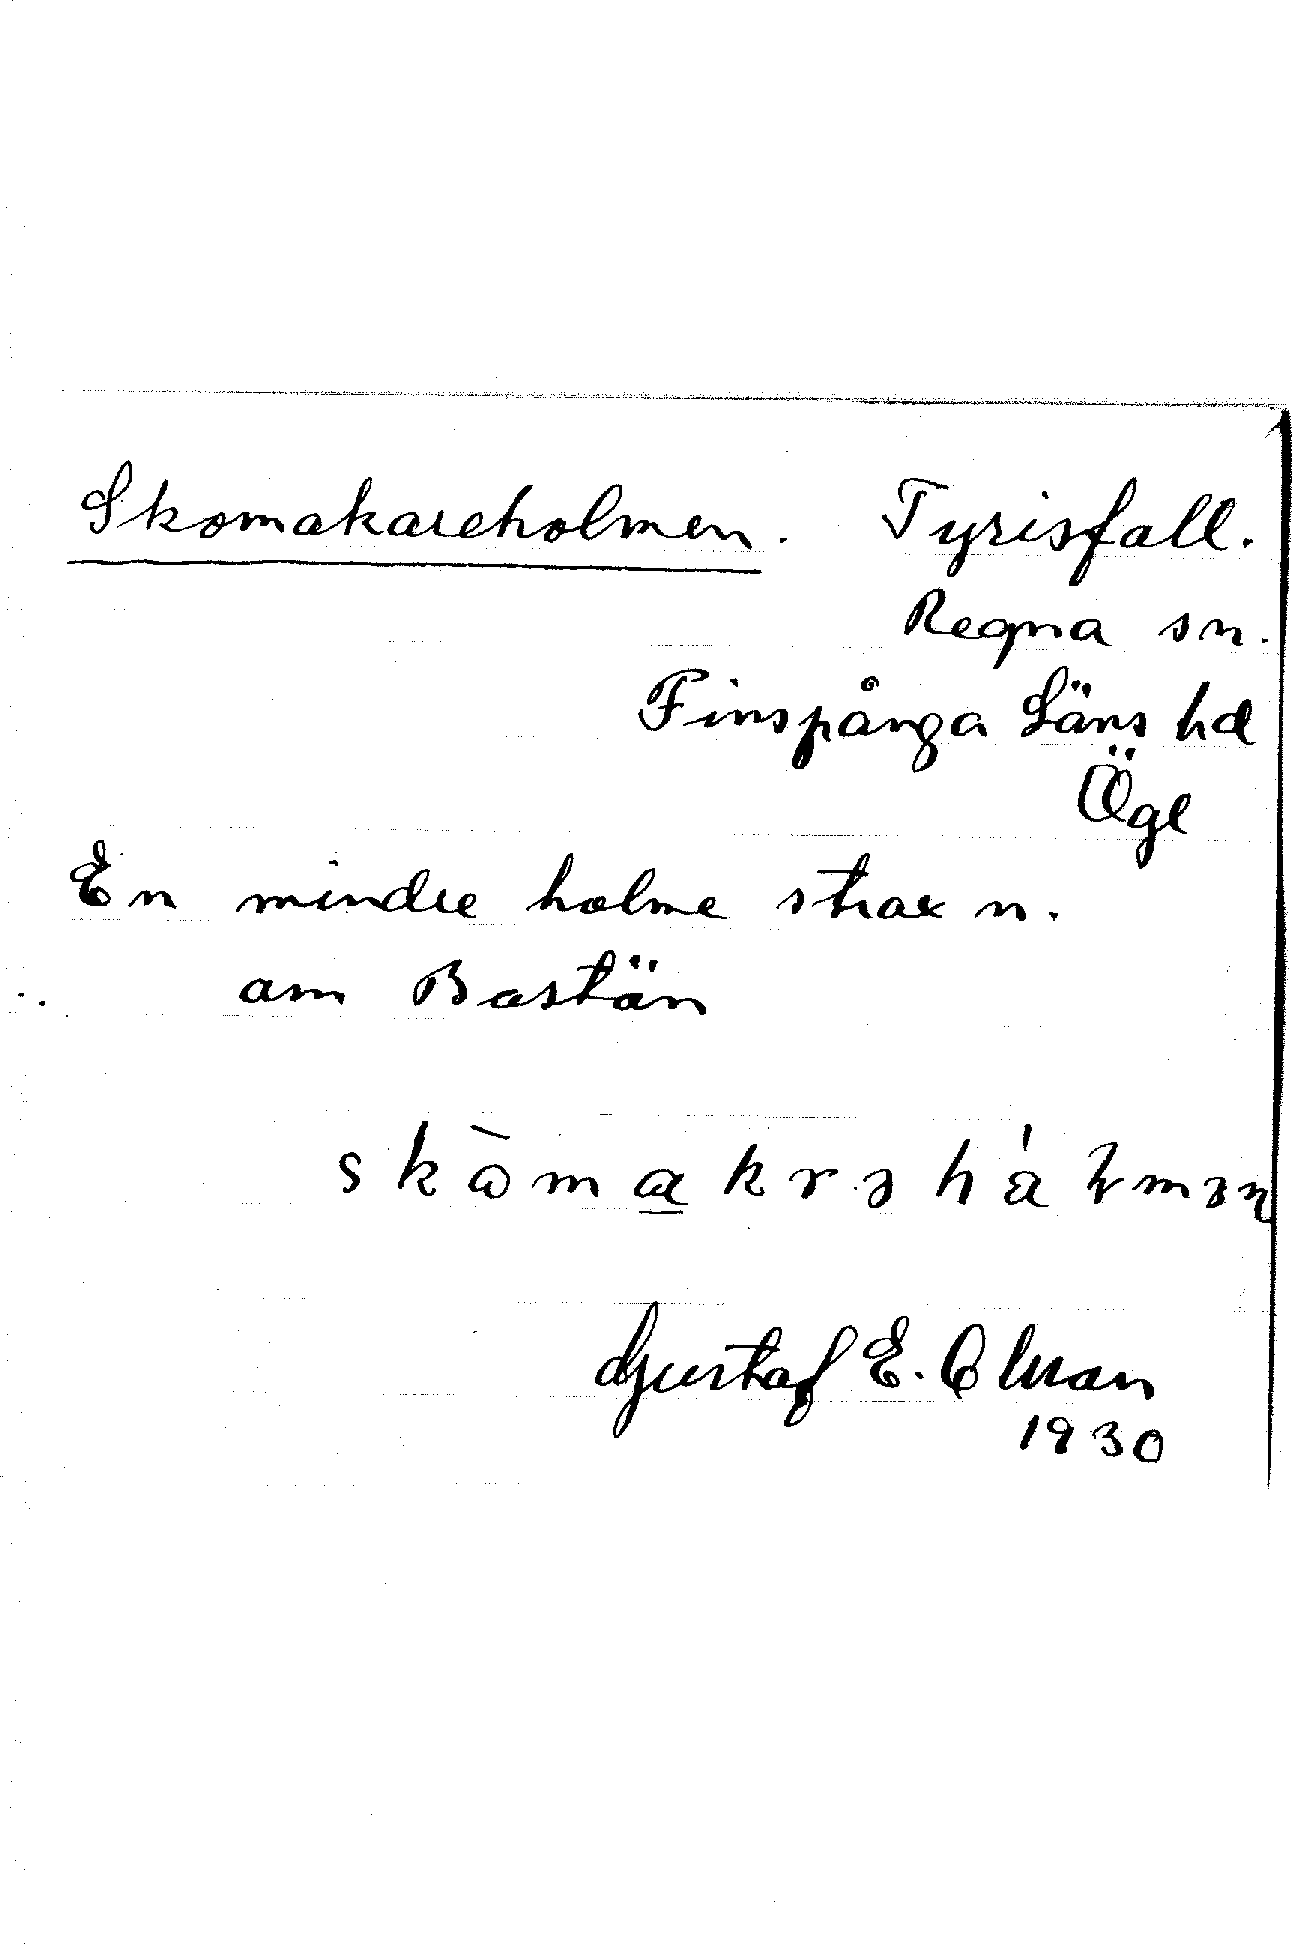 Skomakareholmen. Tyrisfall.
Regna sn.
Finspånga Läns hd
Ögl
En mindre holme strax n.
om Bastön
Gustaf E.
1930